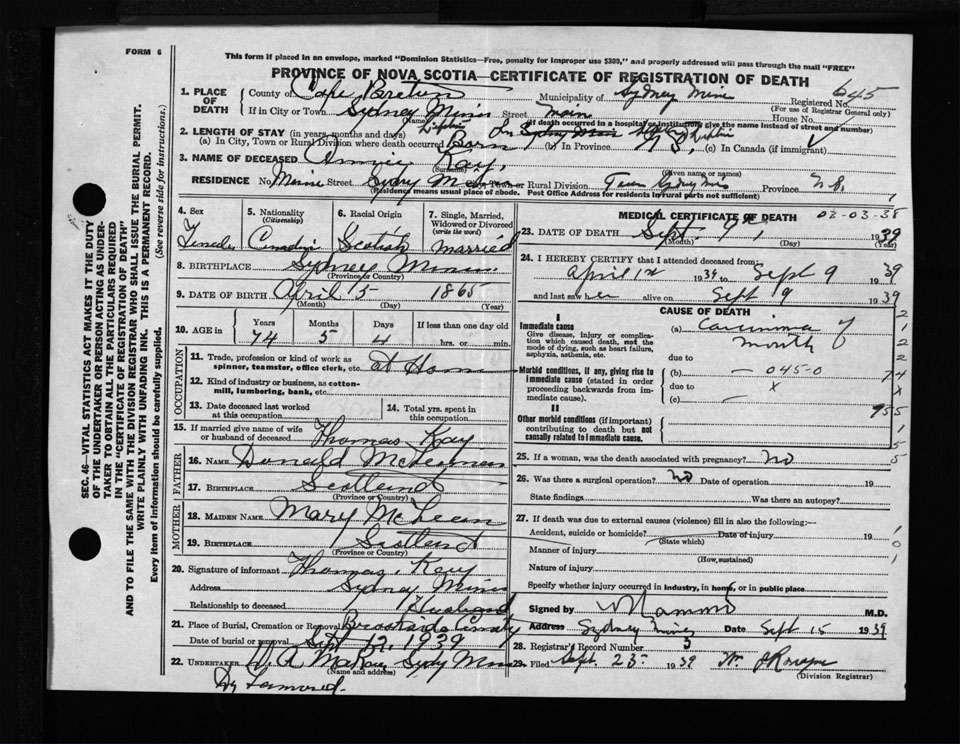 FORM 6
This form if placed in an envelope, marked "Dominion Statistics—Free, penalty for improper use $300," and properly addressed will pass through the mail "FREE"
PROVINCE OF NOVA SCOTIA—CERTIFICATE OF REGISTRATION OF DEATH
SEC. 46—VITAL STATISTICS ACT MAKES IT THE DUTY
OF THE UNDERTAKER OR PERSON ACTING AS UNDER-
TAKER TO OBTAIN ALL THE PARTICULARS REQUIRED
IN THE "CERTIFICATE OF REGISTRATION OF DEATH"
AND TO FILE THE SAME WITH THE DIVISION REGISTRAR WHO SHALL ISSUE THE BURIAL PERMIT.
WRITE PLAINLY WITH UNFADING INK. THIS IS A PERMANENT RECORD.
Every item of information should be carefully supplied. (See reverse side for instructions.)
1. PLACE OF DEATH
County of Cape Breton Municipality of Sydney Mines Registered No. 645
(For use of Registrar General only)
If in City or Town Sydney Mines Street Main House No.
(Name)
(If death occurred in a hospital or institution, give the name instead of street and number)
2. LENGTH OF STAY (in years, months and days)
(a) In City, Town or Rural Division where death occurred Born (b) in Province N.S. (c) In Canada (if immigrant)
3. NAME OF DECEASED Annie Kay
(Surname) (Given name or names)
RESIDENCE No. Main Street Sydney Mines City, Town or Rural Division Town Province N.S.
(Residence means usual place of abode. Post Office Address for Residents in rural parts not sufficient)
4. Sex
Female
5. Nationality
(Citizenship)
Canadian
6. Racial Origin
Scotish
7. Single, Married,
Widowed or Divorced
(write the word)
Married
8. BIRTHPLACE Sydney Mines
(Province or Country)
9. DATE OF BIRTH April 5 1865
(Month) (Day) (Year)
10. AGE in
Years Months Days If less than one day old
74 5 4 hrs. or min.
OCCUPATION
11. Trade, profession or kind of work as
spinner, teamster, office clerk, etc. at Home
12. Kind of industry or business, as cotton-
mill, lumbering, bank, etc.
13. Date deceased last worked
at this occupation
14. Total yrs. spent in
this occupation
15. If married give name of wife
or husband of deceased Thomas Kay
FATHER
16. NAME Donald
17. BIRTHPLACE Scotland
(Province or Country)
MOTHER
18. MAIDEN NAME Mary McLean
19. BIRTHPLACE Scotland
(Province or Country)
20. Signature of informant Thomas Kay
Address Sydney Mines
Relationship to deceased Husband
21. Place of Burial, Cremation or Removal
Date of burial or removal Sept 12, 1939
22. UNDERTAKER W. A. McKay Sydney Mines
(Name and address)
MEDICAL CERTIFICATE OF DEATH 02-03-38
23. DATE OF DEATH Sept. 9th, 1939
(Month) (Day) (Year)
24. I HEREBY CERTIFY that I attended deceased from:
April 1st 1939 to Sept 9 1939
and last saw her alive on Sept 9 1939
CAUSE OF DEATH
I
Immediate cause
Give disease, injury or complica-
tion which caused death, not the
mode of dying, such as heart failure,
asphyxia, asthenia, etc.
(a) Carcinoma of
mouth
due to
Morbid conditions, if any, giving rise to
immediate cause (stated in order
proceeding backwards from im-
mediate cause).
(b) — 045-0
due to x
(c) —
II
Other morbid conditions (if important)
contributing to death but not
causally related to immediate cause.
2
1
2
2
74
x
955
1
5
5
25. If a woman, was the death associated with pregnancy? No
26. Was there a surgical operation? No Date of operation 19
State findings Was there an autopsy?
27. If death was due to external causes (violence) fill in also the following:—
Accident, suicide or homicide? Date of injury 19
(State which)
Manner of injury
(How sustained)
Nature of injury
Specify whether injury occurred in industry, in home, or in public place
1
0
1
Signed by M.D.
Address Sydney Mines Date Sept 15 1939
28. Registrar's Record Number 5
29. Filed Sept. 23 1939 Wm
(Division Registrar)